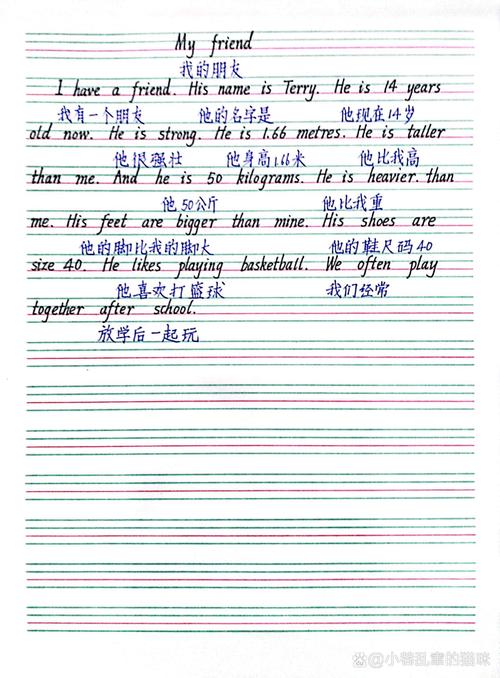 My friend
我的朋友
I have a friend. His name is Terry. He is 14 years
我有一个朋友 他的名字是 他现在14岁
old now. He is strong. He is 1.66 metres. He is taller
他很强壮 他身高1.66米 他比我高
than me. And he is 50 kilograms. He is heavier. than
他50公斤 他比我重
me. His feet are bigger than mine. His shoes are
他的脚比我的脚大 他的鞋尺码40
size 40. He likes playing basketball. We often play
他喜欢打篮球 我们经常
together after school.
放学后一起玩